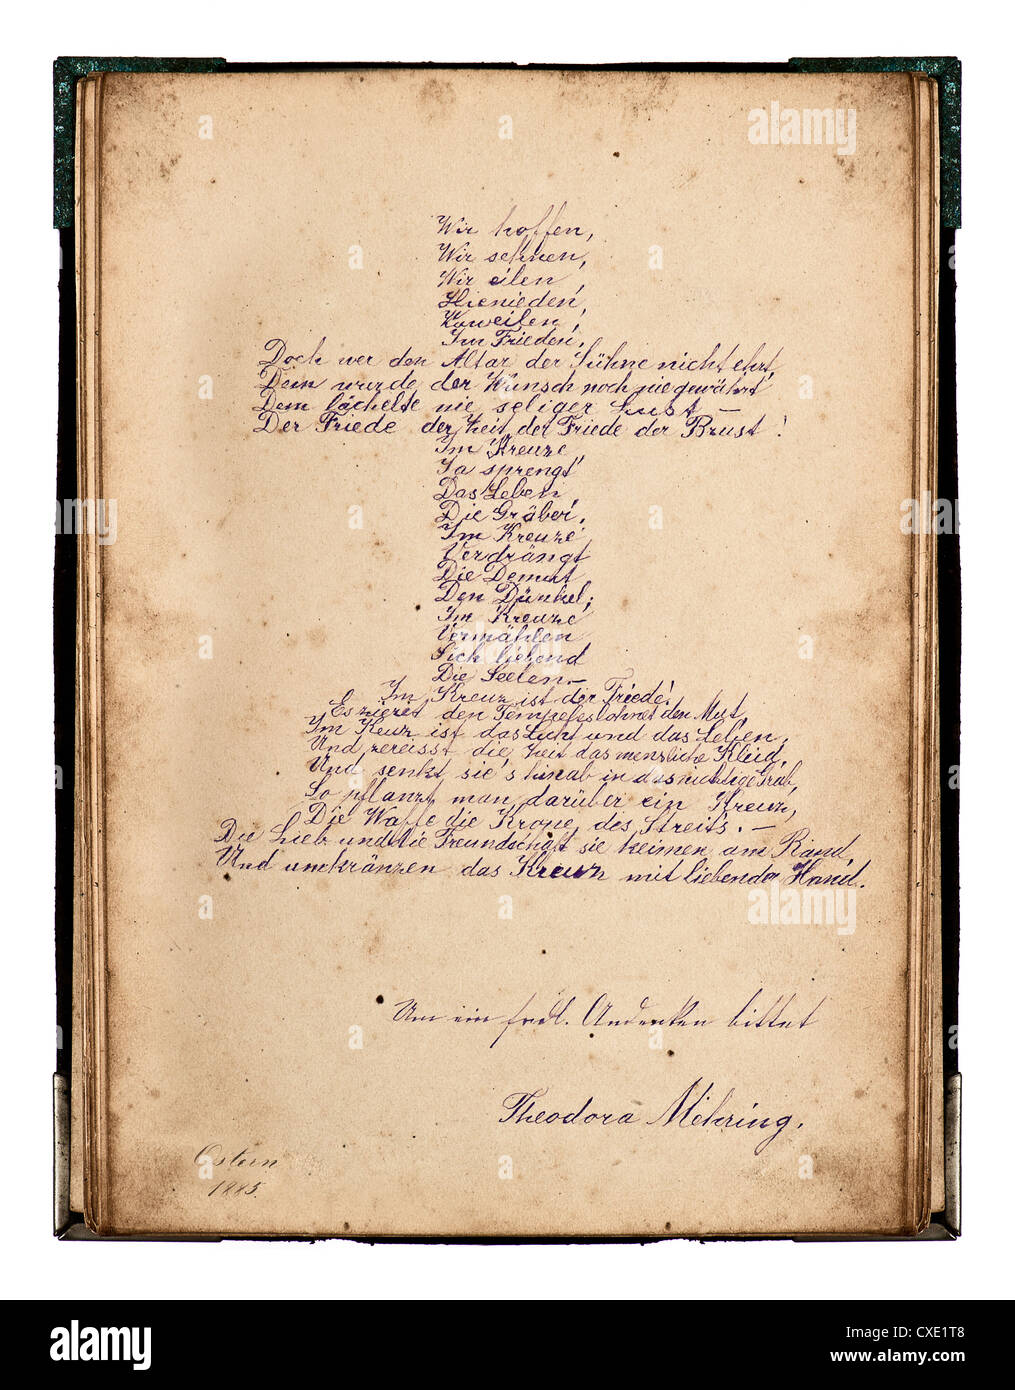 Wir hoffen,
Wir sehnen,
Wir eilen,
Hienieden,
Im Frieden.
Doch wer den Altar der Sühne nicht ehrt,
Dem wurde der Wunsch noch nie gewährt
Dem lächelte nie seliger Lust –
Der Friede der Zeit, der Friede der Brust!
Im Kreuze,
Da sprengt
Das Leben
Die Gräber,
Im Kreuze
Verdrängt
Die Demut
Den Dünkel;
Im Kreuze
Vermählen
Sich liebend
Die Seelen. –
Im Kreuz ist der Friede!
Es zieret den Tempel es lohnet den Mut,
Im Keuz ist das Licht und das Leben,
Und zereisst die Zeit das menzliche Kleid,
Und senkt sie's hinab in das nichtige Grab,
So pflanzt man darüber ein Kreuz,
Die Waffe die Krone des Streits. –
Die Lieb und die Freundschaft sie keimen am Rand,
Und umkränzen das Kreuz mit liebender Hand.
Um ein frdl. Andenken bittet
Theodora Möhring.
Ostern
1885.
alamy
Image ID: CXE1T8
www.alamy.com